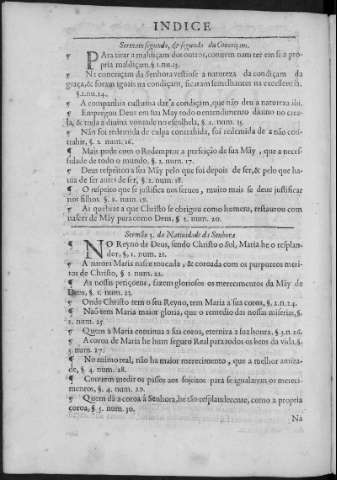 INDICE
Sermaõ segundo, & segundo da Conceiçam.
PAra tirar a maldiçam dos outros, convem nam ter em si a pro-
pria maldiçam. §. 1. nu. 13.
¶ Na conceiçam da Senhora vestiose a natureza da condiçam da
graça, & foram iguais na condiçam, ficaram semelhantes na excellencia.
§. 2. nu. 14.
¶ A companhia custuma dar a condiçam, que não deu a natureza ibi.
¶ Empregou Deus em sua May todo o entendimento divino no crea-
la, & toda a divina vontade no escolhela, §. 2. num. 15.
¶ Não foi redemida de culpa contrahida, foi redemida de a não con-
trahir, §. 2. num. 16.
¶ Mais pode com o Redemptor a perfeição de sua Mãy, que a neces-
sidade de todo o mundo. §. 2. num. 17.
¶ Deus respeitou a sua Mãy pelo que foi depois de ser, & pelo que ha-
via de ser antes de ser, §. 2. num. 18.
¶ O respeito que se justifica nos servos, muito mais se deve justificar
nos filhos. §. 2. num. 19.
¶ As quebras a que Christo se obrigou como homem, restaurou com
nascer de Mãy pura como Deus. §. 2. num. 20.
Sermão 3. da Natividade da Senhora
¶ NO Reyno de Deus, sendo Christo o Sol, Maria he o resplan-
dor. §. 1. num. 21.
¶ A nature Maria nasce toucada, & coroada com os purpureos meri-
tos de Christo, §. 1 num. 22.
¶ As nossas pençoens, fazem gloriosos os merecimentos da Mãy de
Deus, §. 2. num. 23.
¶ Onde Christo tem o seu Reyno, tem Maria a sua coroa, §. 2. n. 24.
¶ Naõ tem Maria maior gloria, que o remedio das nossas miserias, §.
2. num. 25
¶ Quem a Maria continua a sua coroa, eterniza a sua honra. §. 3. n. 26.
¶ A coroa de Maria he hum seguro Real para todos os bens da vida, §.
3 num. 27.
¶ No mimo real, não ha maior merecimento, que a melhor amiza-
de, §. 4. num. 28.
¶ Convem medir os passos aos sojeitos para se igualarem os mereci-
mentos, §. 4. num. 29.
¶ Quem dà a coroa à Senhora, he tão resplandecente, como a propria
coroa, §. 5. num. 30.
Na